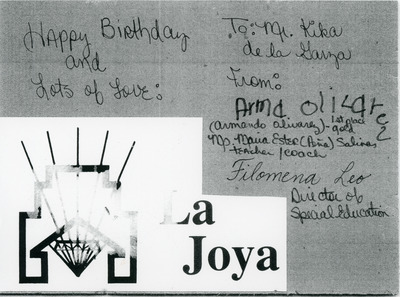 Happy Birthday
and
Lots of Love:
To: Mr. Kika
de la Garza
From:
Arma olivarez
(armando olivarez) - 1st place
gold
Ms. Maria Estee (Peña) Salinas
teacher / coach
Filomena Leo
Director of
Special Education
La
Joya